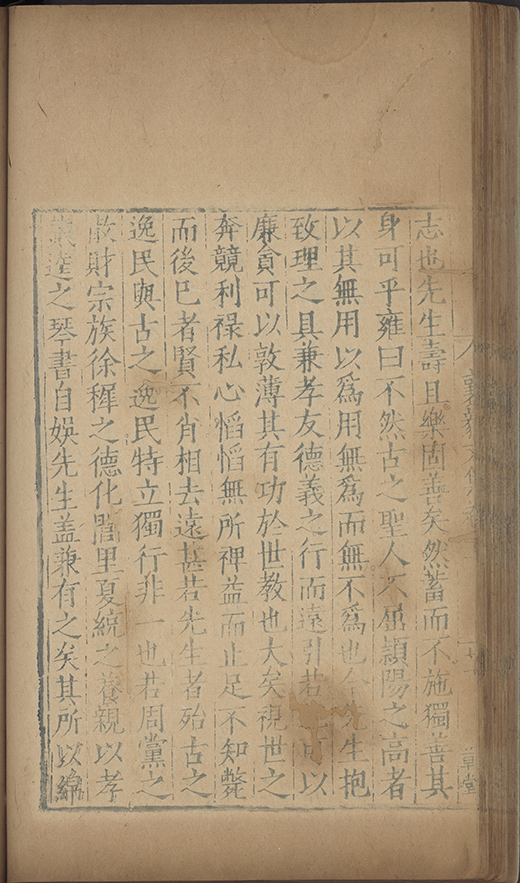 志也先生壽且樂固善矣然蓄而不施獨善其
身可乎雍曰不然古之聖人不屈潁陽之高者
以其無用以爲用無爲而無不爲也今先生抱
致理之具兼孝友德義之行而遠引若可以
廉貪可以敦薄其有功於世教也大矣視世之
奔競利祿私心慆慆無所裨益而止足不知斃
而後已者賢不肖相去遠甚若先生者殆古之
逸民與古之逸民特立獨行非一也若周黨之
散財宗族徐穉之德化閭里夏統之養親以孝
戴逵之琴書自娛先生蓋兼有之矣其所以綿
草堂